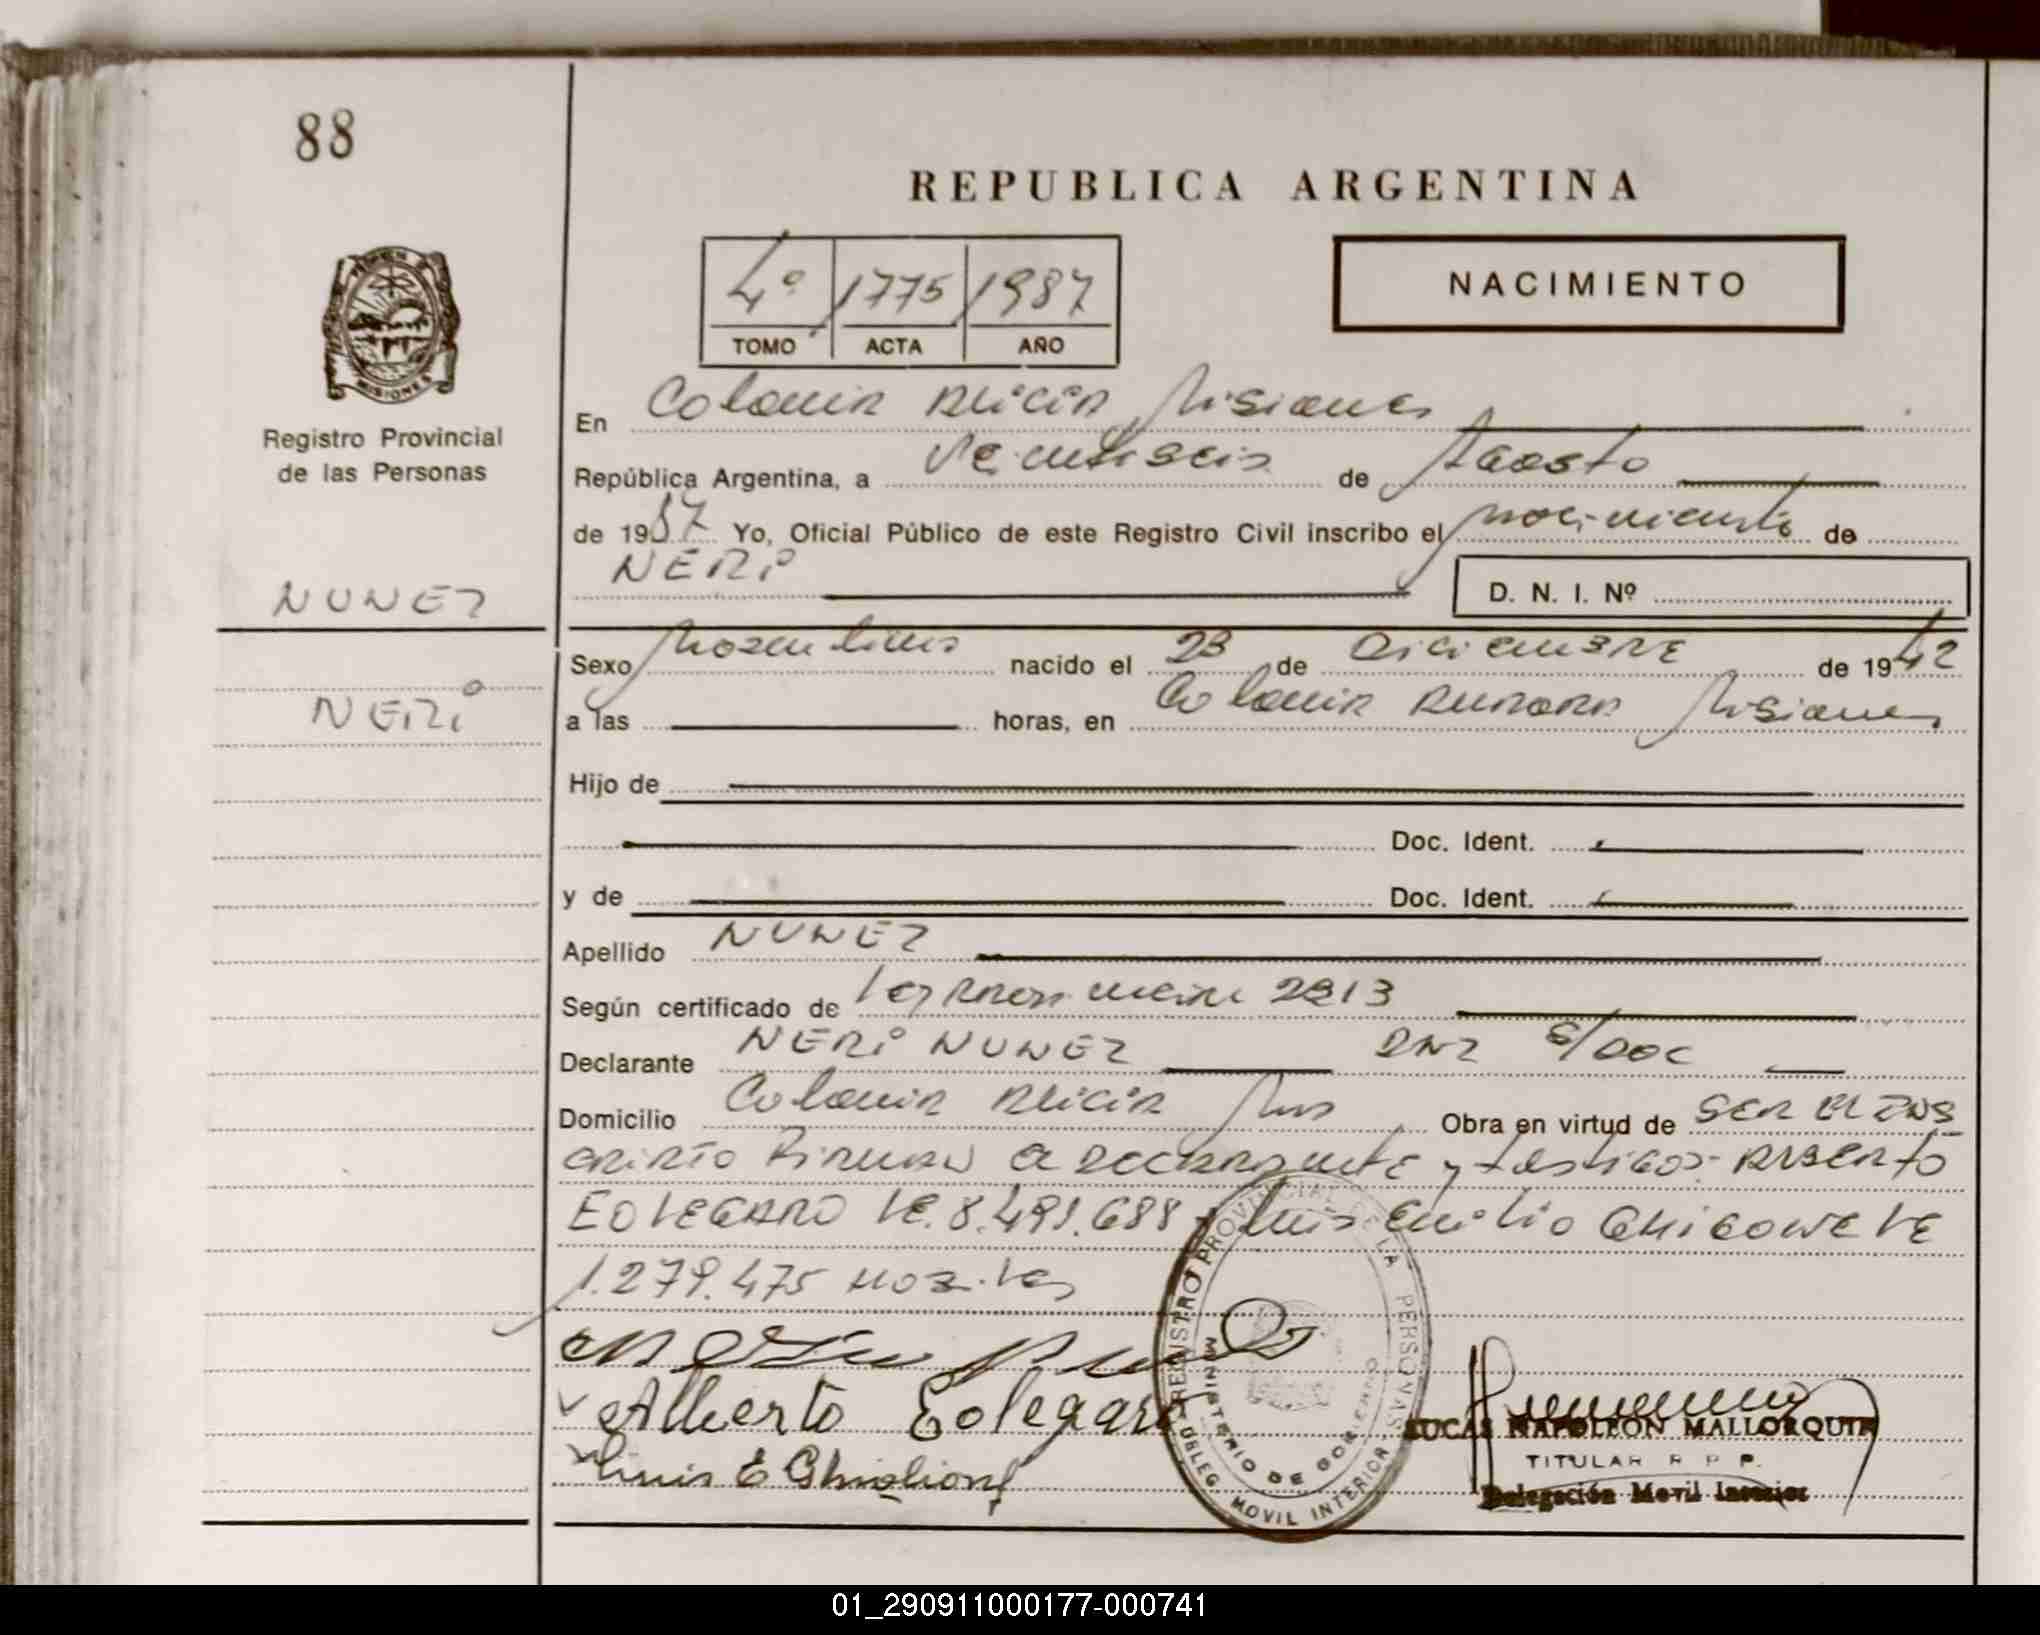 88
REPUBLICA ARGENTINA
4º 1775 1987
TOMO ACTA AÑO
NACIMIENTO
MISIONES
Registro Provincial
de las Personas
En Colonia Alicia Misiones
República Argentina, a Veintiseis de Agosto
de 1987 Yo, Oficial Público de este Registro Civil inscribo el nacimiento de
NERi
D. N. I. Nº
NUNEZ
NERi
Sexo Masculino nacido el 23 de Diciembre de 1942
a las horas, en Colonia Aurora Misiones
Hijo de
Doc. Ident.
y de Doc. Ident.
Apellido NUNEZ
Según certificado de Ley 2213
Declarante NERi NUNEZ DNI S/DOC
Domicilio Colonia Alicia Mns Obra en virtud de SER EL INS
CRIPTO Firman el declarante y testigos Alberto
EOLEGARO LE. 8.491.688 Luis Emilio GHIGONE LE
1.279.475
Alberto Eolegaro
Luis E Ghiglione
REGISTRO PROVINCIAL DE LAS PERSONAS
MINISTERIO DE GOBIERNO
DELEG. MOVIL INTERIOR
LUCAS NAPOLEON MALLORQUIN
TITULAR R P P.
Delegación Movil Interior
01_290911000177-000741